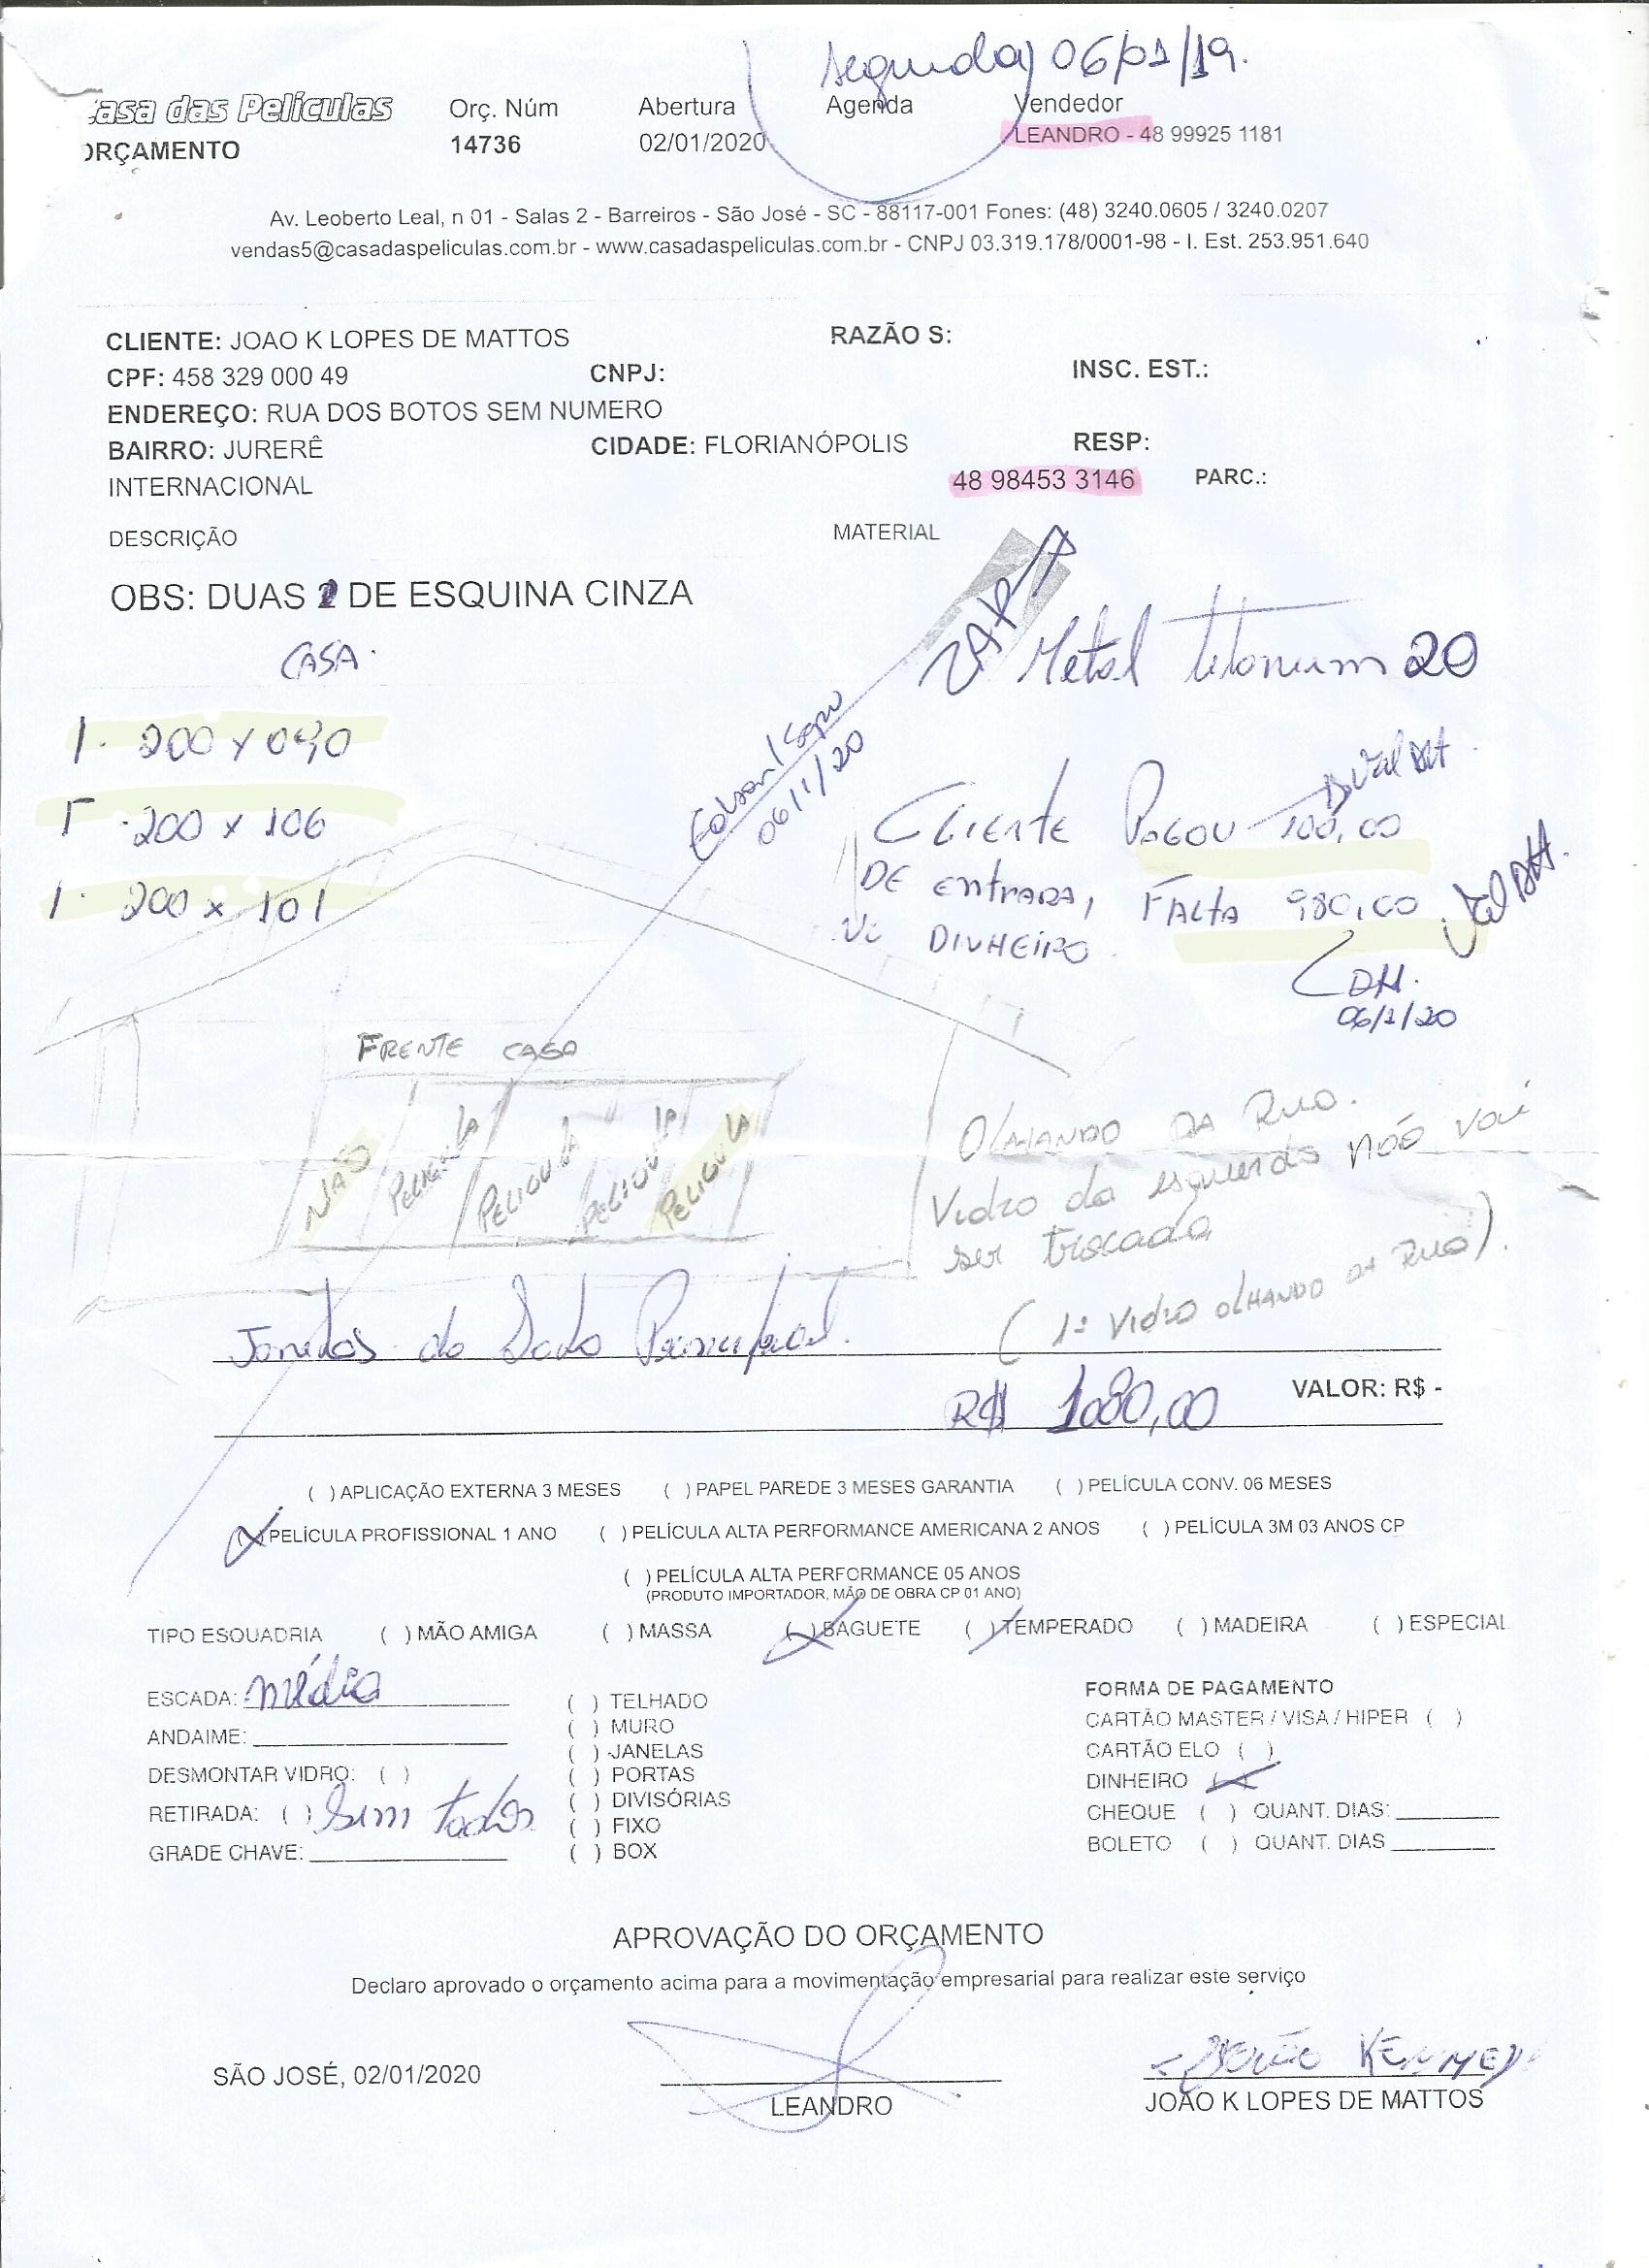 Segunda) 06/01/19.
Casa das Películas
ORÇAMENTO
Orç. Núm
14736
Abertura
02/01/2020
Agenda
Vendedor
LEANDRO - 48 99925 1181
Av. Leoberto Leal, n 01 - Salas 2 - Barreiros - São José - SC - 88117-001 Fones: (48) 3240.0605 / 3240.0207
vendas5@casadaspeliculas.com.br - www.casadaspeliculas.com.br - CNPJ 03.319.178/0001-98 - I. Est. 253.951.640
CLIENTE: JOAO K LOPES DE MATTOS RAZÃO S:
CPF: 458 329 000 49 CNPJ: INSC. EST.:
ENDEREÇO: RUA DOS BOTOS SEM NUMERO
BAIRRO: JURERÊ CIDADE: FLORIANÓPOLIS RESP:
INTERNACIONAL 48 98453 3146 PARC.:
DESCRIÇÃO MATERIAL
OBS: DUAS DE ESQUINA CINZA
CASA.
Metal titanium 20
1. 200 x 090
1 . 200 x 106
1. 200 x 101
06/1/20
CLIENTE PAGOU 100,00
DE ENTRADA, FALTA 980,00
DINHEIRO.
06/1/20
FRENTE CASA
NÃO
PELICULA
PELICULA
PELICULA
PELICULA
OLHANDO DA RUA.
Vidro da esquerda NÃO vai
ser trocado
(1º VIDRO OLHANDO DA RUA).
Janelas do Lado Principal.
R$ 1080,00 VALOR: R$ -
( ) APLICAÇÃO EXTERNA 3 MESES ( ) PAPEL PAREDE 3 MESES GARANTIA ( ) PELÍCULA CONV. 06 MESES
(X) PELÍCULA PROFISSIONAL 1 ANO ( ) PELÍCULA ALTA PERFORMANCE AMERICANA 2 ANOS ( ) PELÍCULA 3M 03 ANOS CP
( ) PELÍCULA ALTA PERFORMANCE 05 ANOS
(PRODUTO IMPORTADOR, MÃO DE OBRA CP 01 ANO)
TIPO ESQUADRIA ( ) MÃO AMIGA ( ) MASSA (X) BAGUETE (/) TEMPERADO ( ) MADEIRA ( ) ESPECIAL
ESCADA: média
ANDAIME:
DESMONTAR VIDRO: ( )
RETIRADA: ( ) Sim todos
GRADE CHAVE:
( ) TELHADO
( ) MURO
( ) JANELAS
( ) PORTAS
( ) DIVISÓRIAS
( ) FIXO
( ) BOX
FORMA DE PAGAMENTO
CARTÃO MASTER / VISA / HIPER ( )
CARTÃO ELO ( )
DINHEIRO (X)
CHEQUE ( ) QUANT. DIAS:
BOLETO ( ) QUANT. DIAS
APROVAÇÃO DO ORÇAMENTO
Declaro aprovado o orçamento acima para a movimentação empresarial para realizar este serviço
SÃO JOSÉ, 02/01/2020
LEANDRO
JOÃO KENNEDY
JOAO K LOPES DE MATTOS